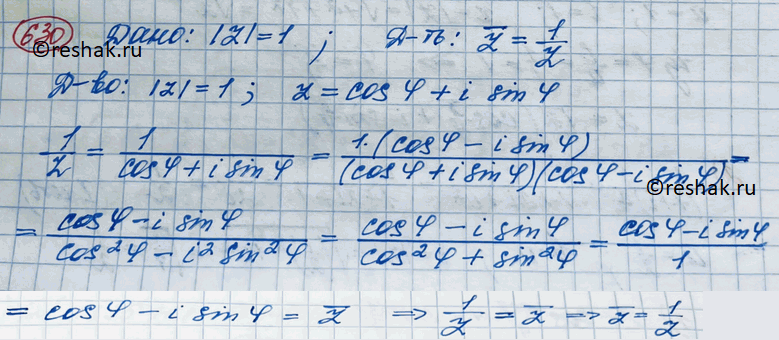 630 Дано: |z|=1 ; Д-ть: z̅ = 1/z
©reshak.ru
Д-во: |z|=1; z = cos φ + i sin φ
1/z = 1/(cos φ + i sin φ) = 1·(cos φ − i sin φ)/((cos φ + i sin φ)(cos φ − i sin φ)) =
©reshak.ru
= (cos φ − i sin φ)/(cos²φ − i² sin²φ) = (cos φ − i sin φ)/(cos²φ + sin²φ) = (cos φ − i sin φ)/1
= cos φ − i sin φ = z̅ ⇒ 1/z = z̅ ⇒ z̅ = 1/z